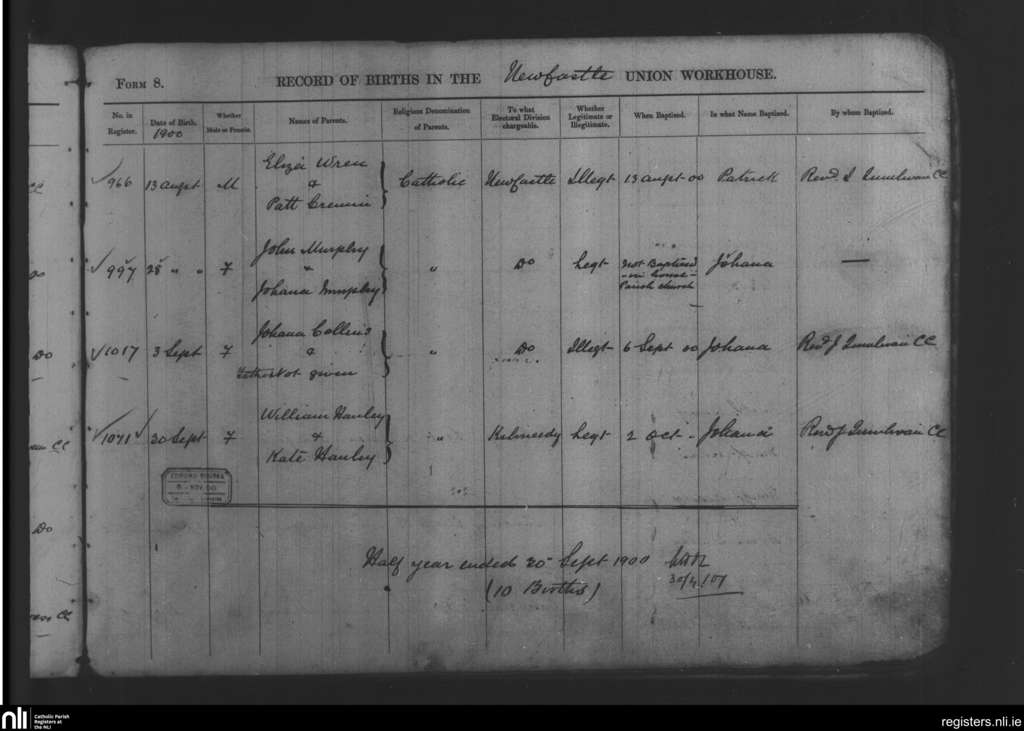 FORM 8.
RECORD OF BIRTHS IN THE Newcastle UNION WORKHOUSE.
No. in Register.
Date of Birth. 1900
Whether Male or Female.
Names of Parents.
Religious Denomination of Parents.
To what Electoral Division chargeable.
Whether Legitimate or Illegitimate.
When Baptized.
In what Name Baptized.
By whom Baptized.
Eliza Wren
966 13 augst M & Catholic Newcastle Illegt 13 augst 00 Patrick Revd
Patt
John Murphy
997 28 " " F & " Do Legt Not Baptised Johana —
in house
Johana Murphy Parish church
Johana Collins
1017 3 Sept F & " Do Illegt 6 Sept 00 Johana Revd J CC
Father Not given
William Hanley
1071 30 Sept F & " Kilmeedy Legt 2 Oct " Johana Revd J CC
Kate Hanley
Half year ended Sept 1900
(10 Births)
Do
CC
Do
CC
nli
Catholic Parish
Registers at
the NLI
registers.nli.ie